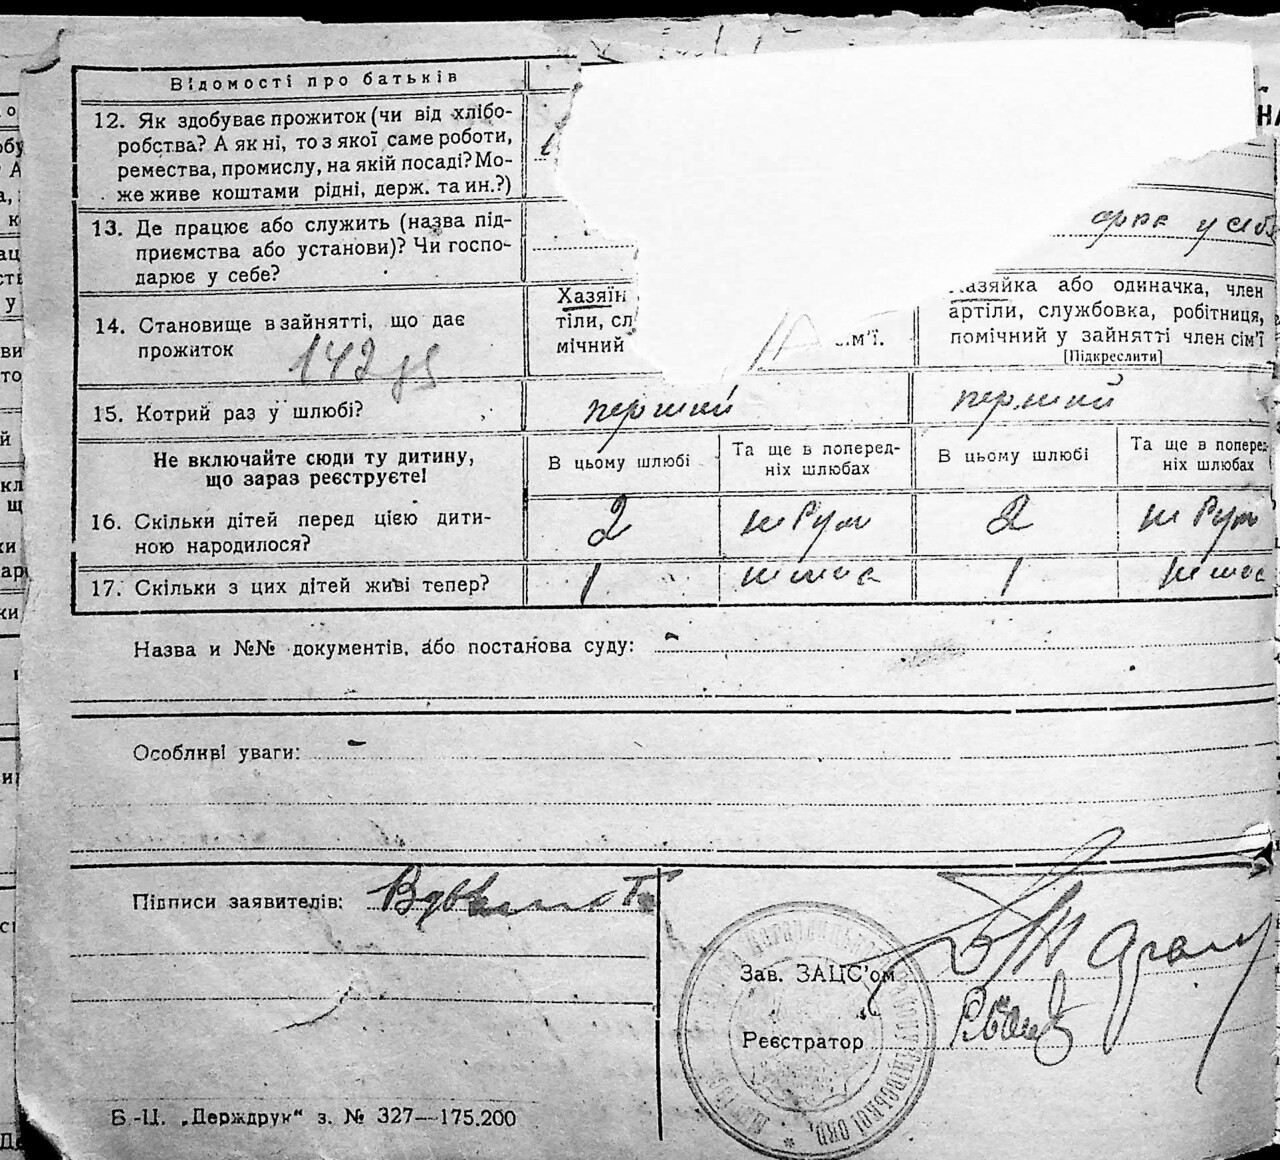 Відомості про батьків
12. Як здобуває прожиток (чи від хлібо-
робства? А як ні, то з якої саме роботи,
ремества, промислу, на якій посаді? Мо-
же живе коштами рідні, держ. та ин.?)
13. Де працює або служить (назва під-
приємства або установи)? Чи госпо-
дарює у себе?
у себе
14. Становище в зайнятті, що дає
прожиток
142
Хазяїн
тіли, сл
мічний
сім'ї.
Хазяйка або одиначка, член
артіли, службовка, робітниця,
помічний у зайнятті член сім'ї
[Підкреслити]
15. Котрий раз у шлюбі?
перший
перший
Не включайте сюди ту дитину,
що зараз реєструєте!
В цьому шлюбі
Та ще в поперед-
ніх шлюбах
В цьому шлюбі
Та ще в поперед-
ніх шлюбах
16. Скільки дітей перед цією дити-
ною народилося?
2
2
17. Скільки з цих дітей живі тепер?
1
немає
1
немає
Назва и №№ документів, або постанова суду: -
Особливі уваги: -
Підписи заявителів:
Зав. ЗАЦС'ом
Реєстратор
Б.-Ц. „Держдрук" з. № 327—175.200